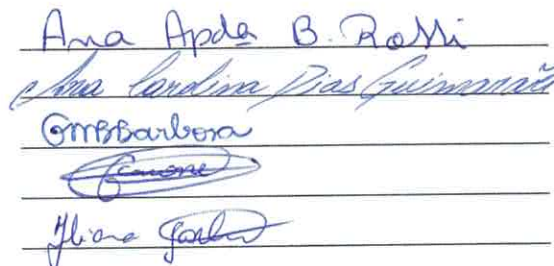 Ana Apda B. Rossi
Ana Carolina Dias Guimarães
GMBBarbosa
Simone